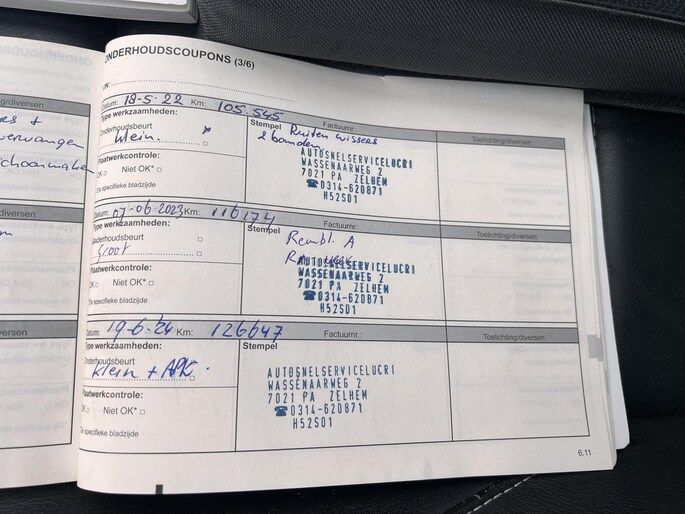 ONDERHOUDSCOUPONS (3/6)
VIN:
Datum: 18-5-22 Km: 105.545
Type werkzaamheden:
Stempel Factuurnr.: Toelichting/diversen
Onderhoudsbeurt
klein.
Ruiten wissers
2 banden
Plaatwerkcontrole:
OK □ Niet OK* □
*Zie specifieke bladzijde
AUTOSNELSERVICELUCRI
WASSENAARWEG 2
7021 PA ZELHEM
☎0314-620871
H52S01
Datum: 07-06-2023 Km: 116174
Type werkzaamheden:
Stempel Factuurnr.: Toelichting/diversen
Onderhoudsbeurt
groot
Rembl. A
Plaatwerkcontrole:
OK □ Niet OK* □
*Zie specifieke bladzijde
AUTOSNELSERVICELUCRI
WASSENAARWEG 2
7021 PA ZELHEM
☎0314-620871
H52S01
Datum: 19-6-24 Km: 126647
Type werkzaamheden:
Stempel Factuurnr.: Toelichting/diversen
Onderhoudsbeurt
klein + APK
Plaatwerkcontrole:
OK □ Niet OK* □
*Zie specifieke bladzijde
AUTOSNELSERVICELUCRI
WASSENAARWEG 2
7021 PA ZELHEM
☎0314-620871
H52S01
6.11